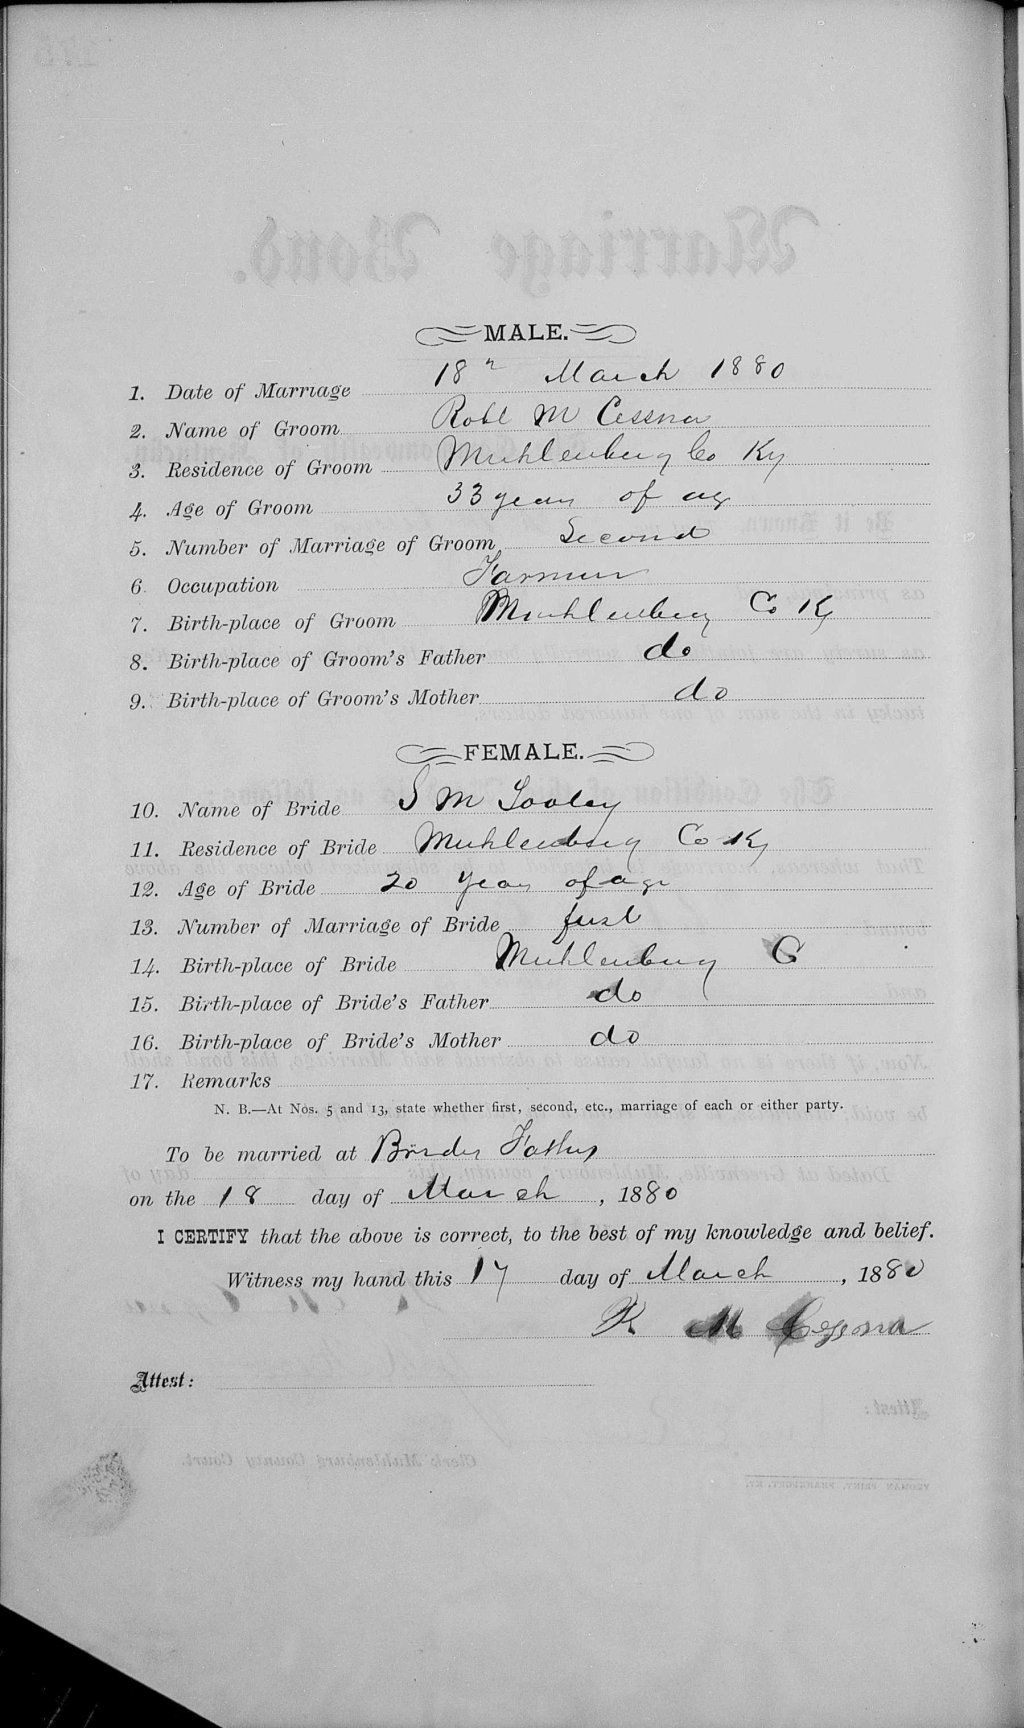 MALE.
1. Date of Marriage 18th March 1880
2. Name of Groom Robt M Cessna
3. Residence of Groom Muhlenburg Co Ky
4. Age of Groom 33 years of age
5. Number of Marriage of Groom Second
6. Occupation Farmer
7. Birth-place of Groom Muhlenburg Co Ky
8. Birth-place of Groom's Father do
9. Birth-place of Groom's Mother do
FEMALE.
10. Name of Bride S M Tooley
11. Residence of Bride Muhlenburg Co Ky
12. Age of Bride 20 Years of age
13. Number of Marriage of Bride first
14. Birth-place of Bride Muhlenburg Co
15. Birth-place of Bride's Father do
16. Birth-place of Bride's Mother do
17. Remarks
N. B.—At Nos. 5 and 13, state whether first, second, etc., marriage of each or either party.
To be married at Brides Fathers
on the 18 day of March, 1880
I CERTIFY that the above is correct, to the best of my knowledge and belief.
Witness my hand this 17 day of March, 1880
R M Cessna
Attest: